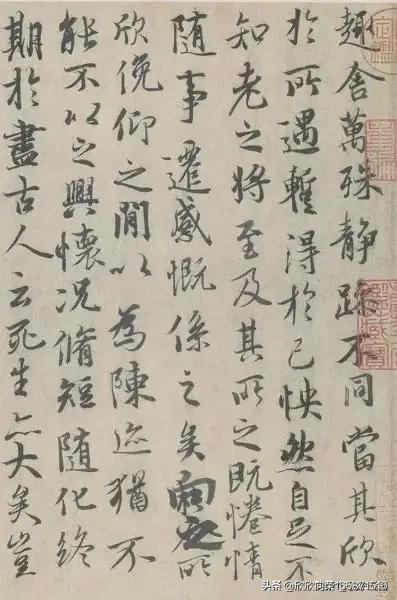 趣舍萬殊静躁不同當其欣
於所遇蹔得於己怏然自足不
知老之將至及其所之既惓情
随事遷感慨係之矣向之所
欣俛仰之閒以為陳迹猶不
能不以之興懷况脩短随化終
期於盡古人云死生亦大矣豈
头条